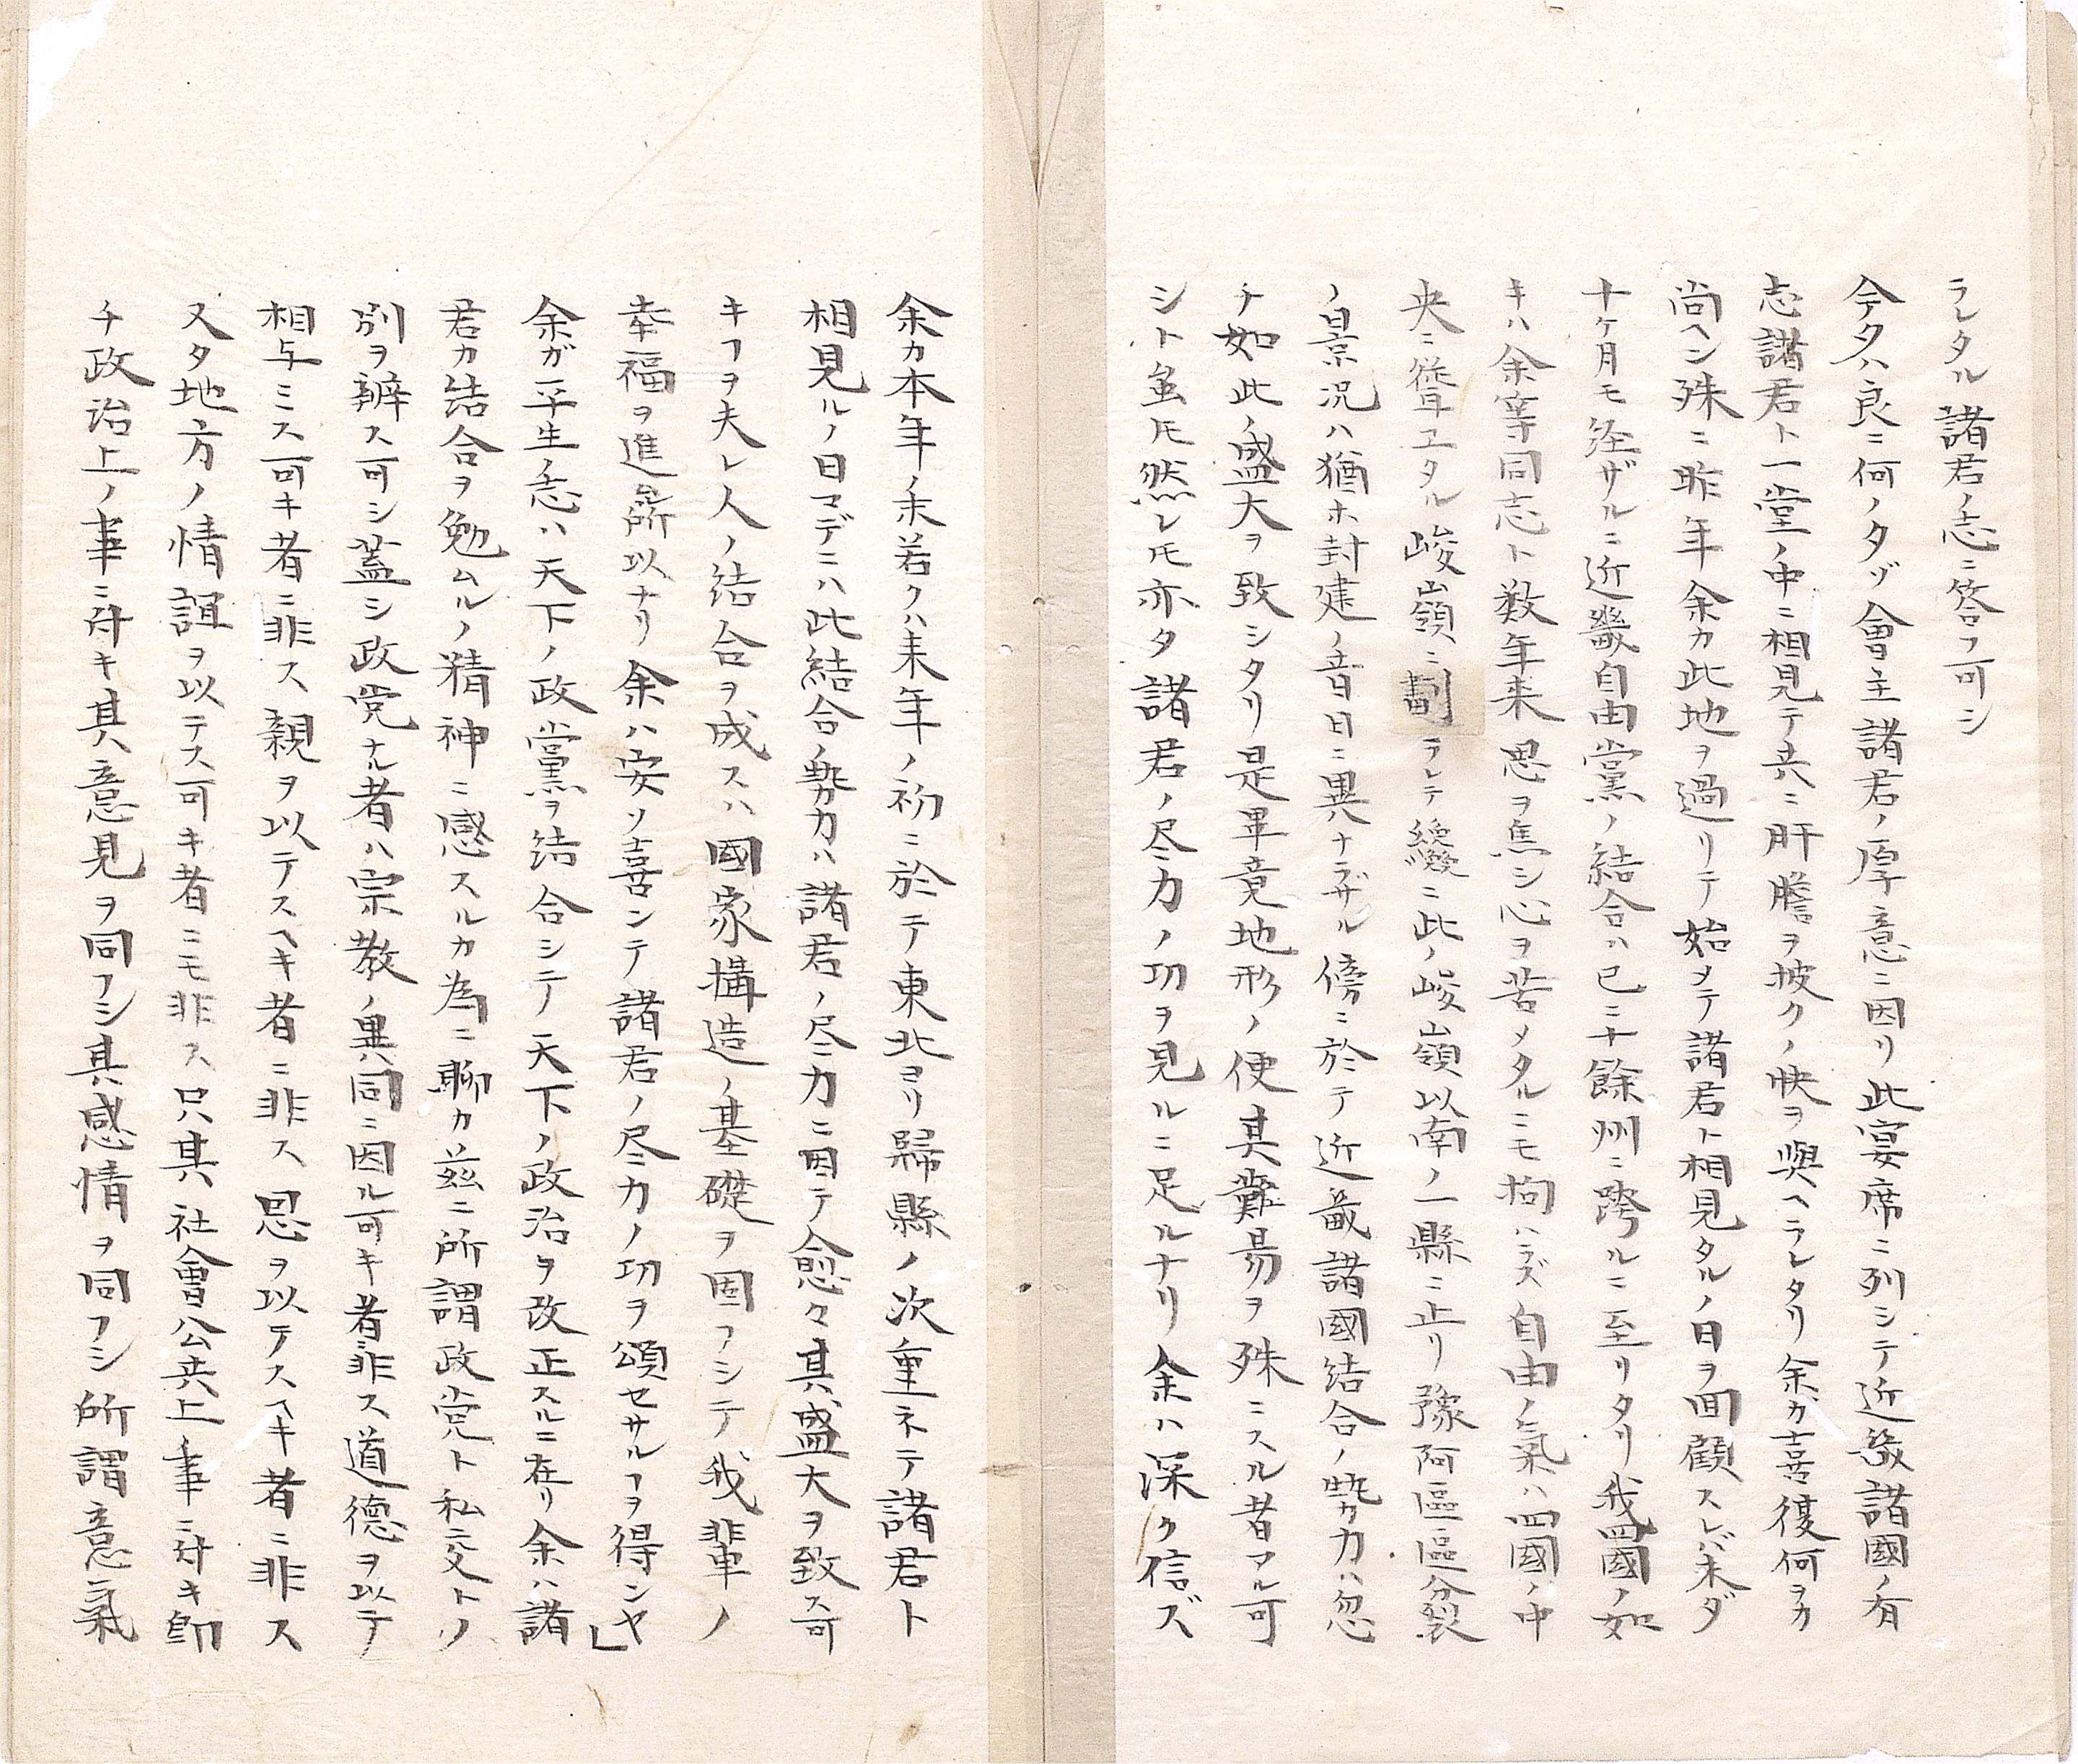 ラレタル諸君ノ志ニ答フ可シ
今タハ良ニ何ノタゾ會主諸君ノ厚意ニ因リ此宴席ニ列シテ近畿諸國ノ有
志諸君ト一堂ノ中ニ相見テ共ニ肝膽ヲ披クノ快ヲ與ヘラレタリ余ガ喜復何ヲカ
尚ヘン殊ニ昨年余カ此地ヲ過リテ始メテ諸君ト相見タルノ日ヲ面顧スレバ未ダ
十ケ月モ経ザルニ近畿自由黨ノ結合ハ已ニ十餘州ニ跨ルニ至リタリ我四國ノ如
キハ余等同志ト数年来思ヲ焦シ心ヲ苦メタルニモ拘ハラズ自由ノ氣ハ四國ノ中
央ニ聳エタル峻嶺ニ劃ラレテ纔ニ此ノ峻嶺以南ノ一縣ニ止リ豫阿區區分裂
ノ景況ハ猶ホ封建ノ昔日ニ異ナラザル傍ニ於テ近畿諸國結合ノ勢力ハ忽
チ如此ノ盛大ヲ致シタリ是畢竟地形ノ便其難易ヲ殊ニスル者アル可
シト虽モ然レモ亦タ諸君ノ尽力ノ功ヲ見ルニ足ルナリ余ハ深ク信ズ
余カ本年ノ末若クハ来年ノ初ニ於テ東北ヨリ歸縣ノ次重ネテ諸君ト
相見ルノ日マデニハ此結合ノ勢力ハ諸君ノ尽力ニ因テ愈々其盛大ヲ致ス可
キヿヲ夫レ人ノ結合ヲ成スハ國家搆造ノ基礎ヲ固フシテ我輩ノ
幸福ヲ進ル所以ナリ余ハ安ソ喜ンテ諸君ノ尽力ノ功ヲ頌セサルヿヲ得ンヤ」
余ガ平生ノ志ハ天下ノ政黨ヲ結合シテ天下ノ政治ヲ改正スルニ在リ余ハ諸
君カ結合ヲ勉ムルノ精神ニ感スルカ為ニ聊カ茲ニ所謂政党ト私交トノ
別ヲ辨ス可シ蓋シ政党ナル者ハ宗教ノ異同ニ因ル可キ者非ス道徳ヲ以テ
相与ミス可キ者ニ非ス親ヲ以テスヘキ者ニ非ス恩ヲ以テスヘキ者ニ非ス
又タ地方ノ情誼ヲ以テス可キ者ニモ非ス只其社會公共上ノ事ニ付キ卽
チ政治上ノ事ニ付キ其意見ヲ同フシ其感情ヲ同フシ所謂意氣